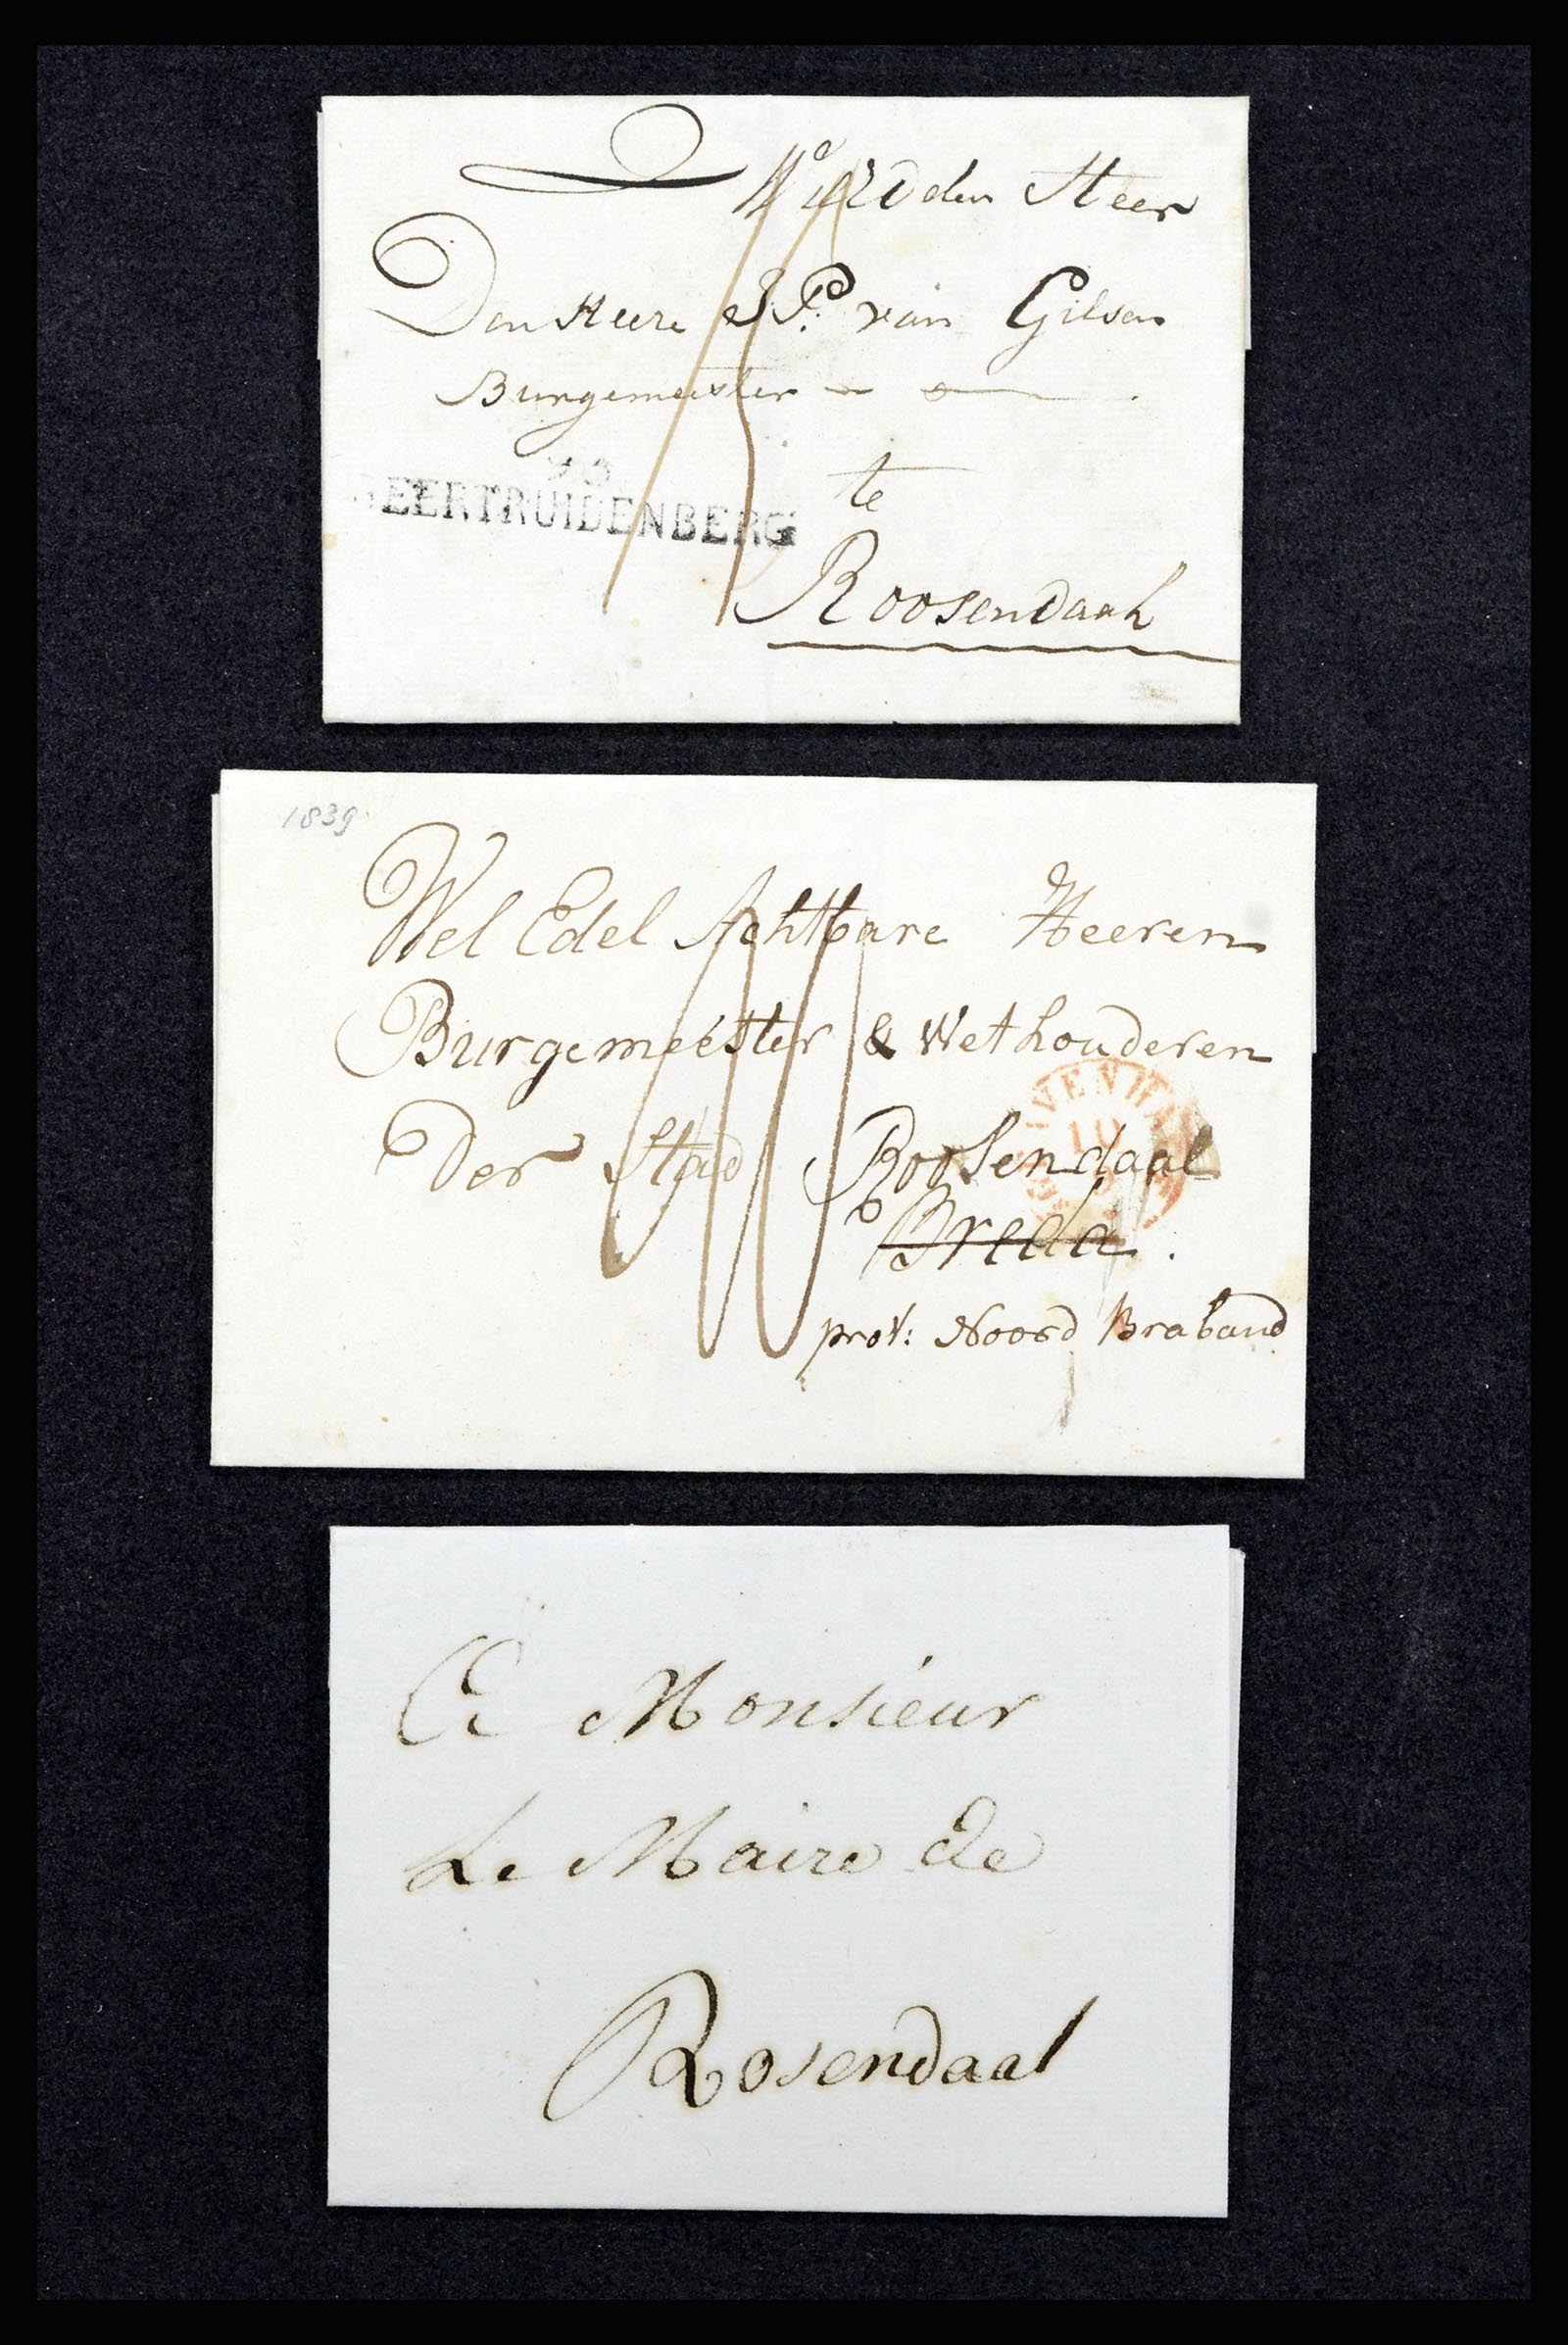 den Heer
Den Heere J P: van Gilsen
Burgemeester
93
EERTRUIDENBERG
te
Roosendaal
1839.
Wel Edel Achtbare Heeren
Burgemeester & Wethouderen
der Stad Roosendaal
Breda.
prov: Noord Braband
VENHA
10
A Monsieur
Le Maire de
Rosendaal